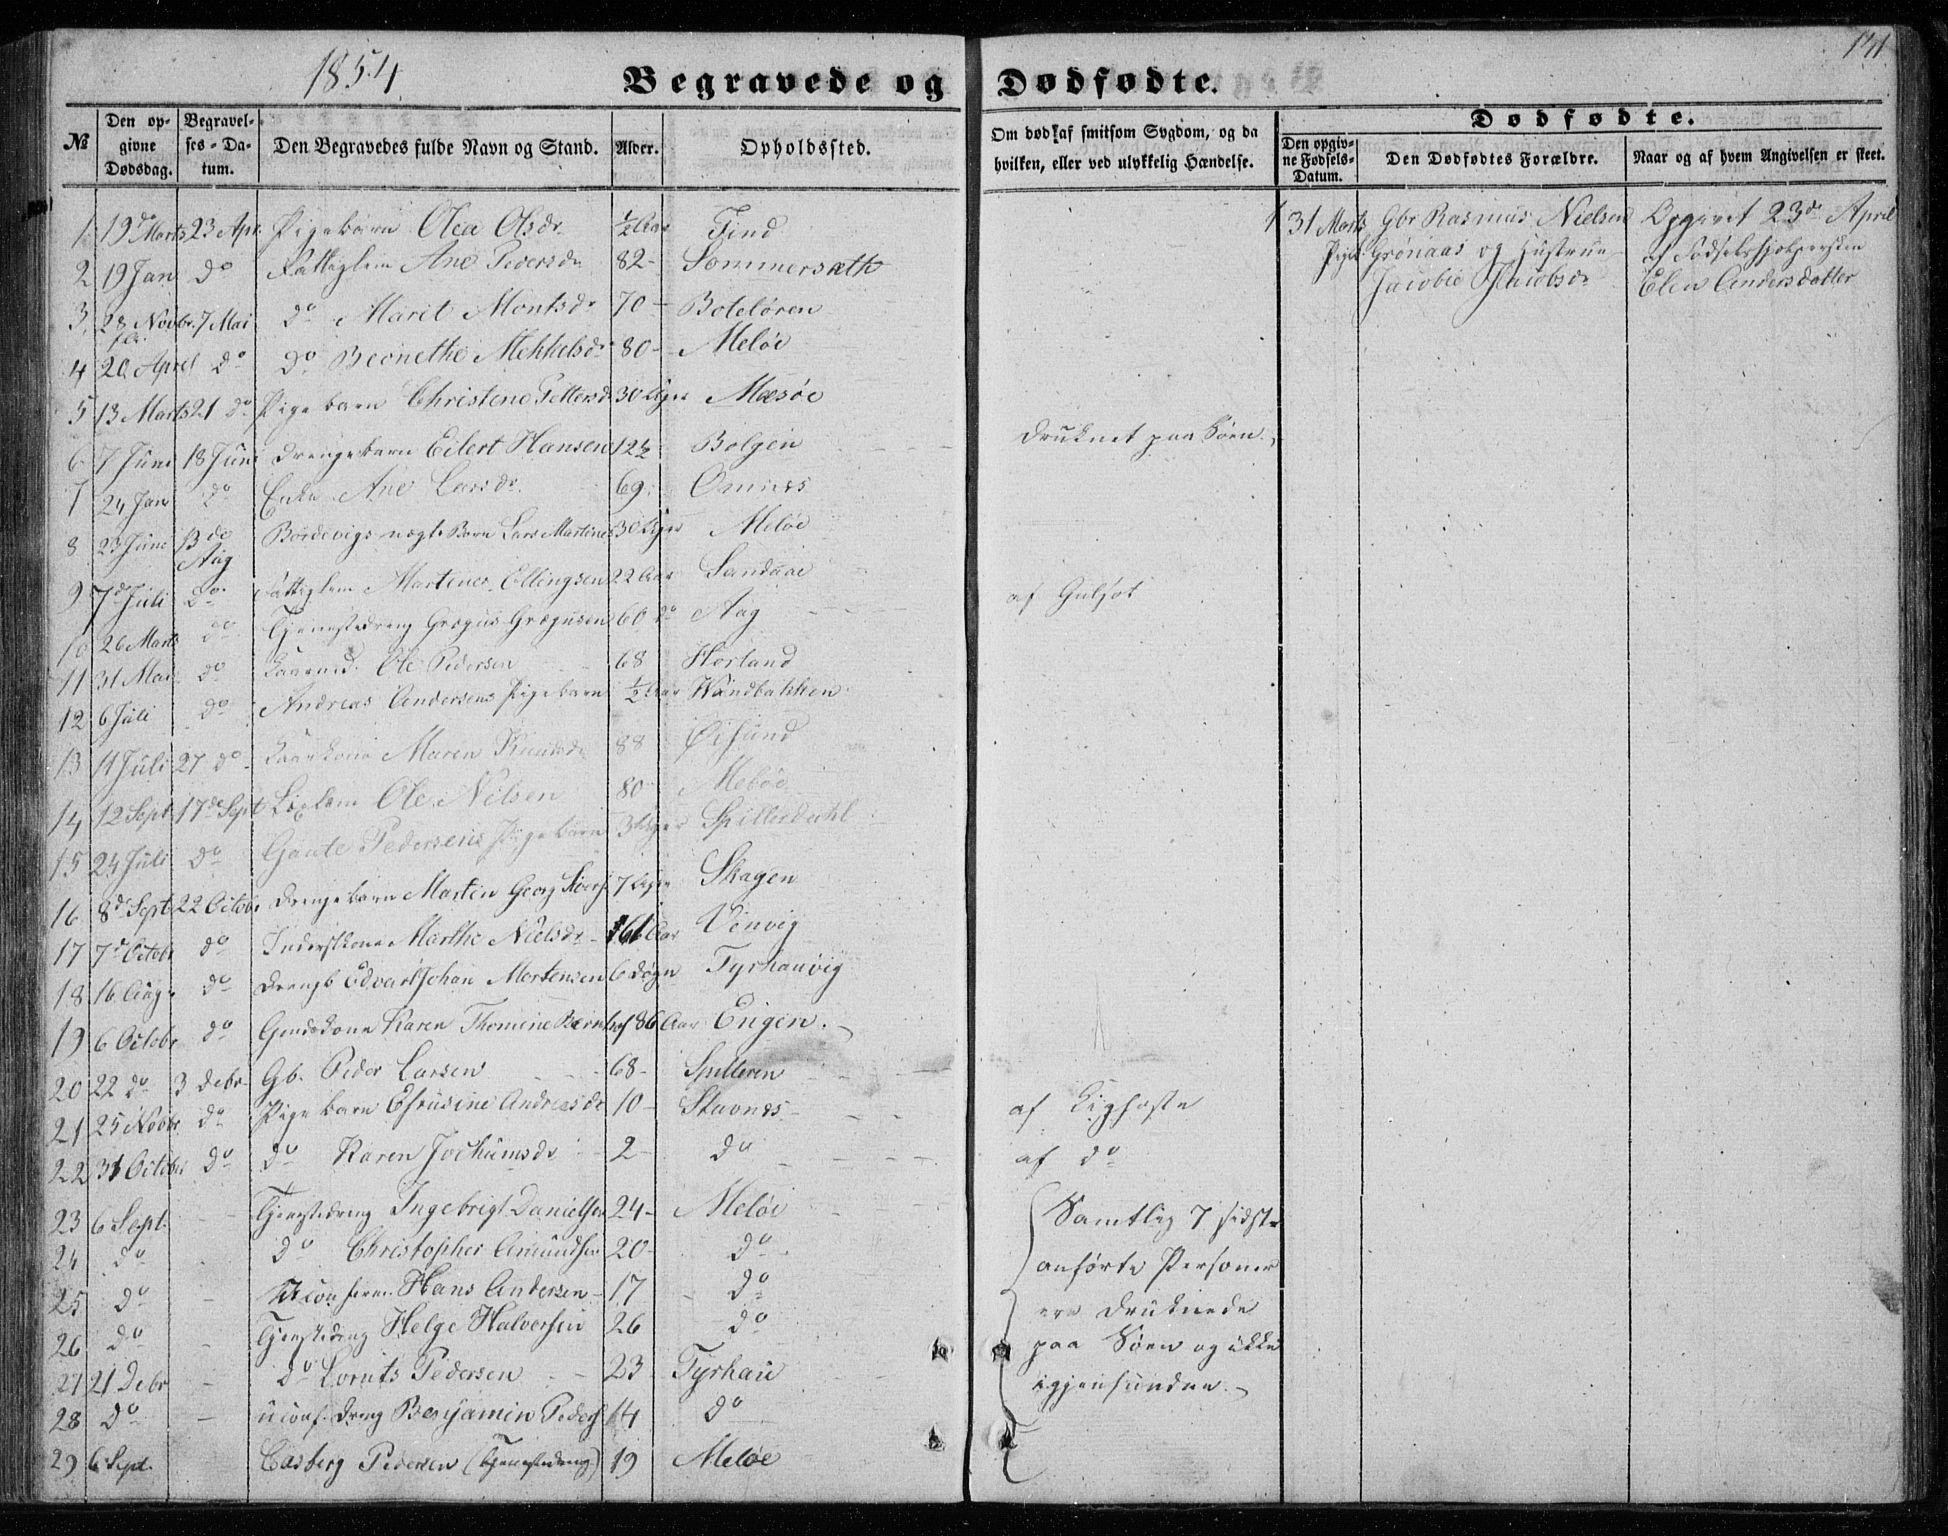 1854
141
Begravede og Dødfødte.
№ Den opgivne Dødsdag. Begravelses-Datum. Den Begravedes fulde Navn og Stand. Alder. Opholdssted. Om død af smitsom Sygdom, og da hvilken, eller ved ulykkelig Hændelse.
Dødfødte.
Den opgivne Fødsels-Datum. Den Dødfødtes Forældre. Naar og af hvem Angivelsen er skeet.
1 19de Marts 23 Apr. Pigebarn Olea Olsdr ½ Aar Find
2 19 Jan do Fattiglem Ane Pedersdr 82 - Sommersæth
3 28 Novbr 7 Mai do Marit Montsdr 70 - Boteløren
4 20 April do do Beonethe Mekkelsdr 80 - Meløe
5 13 Marts 21 do Pigebarn Christene Pettersdr 30 Uger Mæsøe
6 7 Juni 18 Juni Drengebarn Eilert Hansen 12½ Bolgen Druknet paa Søen.
7 24 Jan do Enke Ane Larsdr 69 Omnes
8 23 Juni 13de Aug Barn Lars Martines 30 Uger Meløe
9 7de Juli do Fattiglem Martines Ellingsen 22 Aar Sandaae af Gulsot
10 26 Marts do Tjenestedreng Grægus Grægusen 60 do Aag
11 31 Mai do Ole Pedersen 68 Horland
12 6 Juli do Andreas Andersens Pigebarn ½ Aar Vandbakken
13 14 Juli 27 do Kaarkone Maren Knudsdr 88 Øisund
14 12 Sept 17de Sept Ole Nilsen 80 Meløe
15 24 Juli do Gaute Pedersens Pigebarn 3 Uger Spillerdahl
16 8de Sept 22 Octobr Drengebarn Martin Georg 7 Uger Skagen
17 7de Octobr do Inderstkone Marthe Nielsdr 61 Aar Venvig
18 16 Aug do Drengb Edvart Johan Mortensen 6 Døgn Tyrhaugvig
19 6 Octobr do Karen Thomine 86 Aar Engen.
20 22 do 3 Debr Gb. Peder Larsen 68 - Spilleren
21 25 Novbr do Pigebarn Efrusine Andreasdr 10 - Stavnes af Kighoste
22 31 Octobr do do Karen Jochumsdr 2 - do af do
23 6 Sept. Tjenestedreng Ingebrigt Danielsen 24 - Meløe
24 do do Christopher Amundsen 20 - do
25 do Uconferm. Hans Andersen 17 do
26 do Tjenestedreng Helge Halversen 26 do
27 21 Debr do Lornts Pedersen 23 Tyrhau
28 do uconf. Dreng Benjamin Peders 14 do
29 6 Sept. Casberg Pedersen (Tjenestedreng) 19 Meløe
Samtlig 7 sidst
anførte Personer
ere druknede
paa Søen og ikke
igjenfundne.
1 31 Marts Gbr Rasmus Nielsen Opgivet 23de April
Pigeb. Grønaas og Hustrue af Fødselshjælpersken
Jacobie Jacobsdr Elen Andersdatter